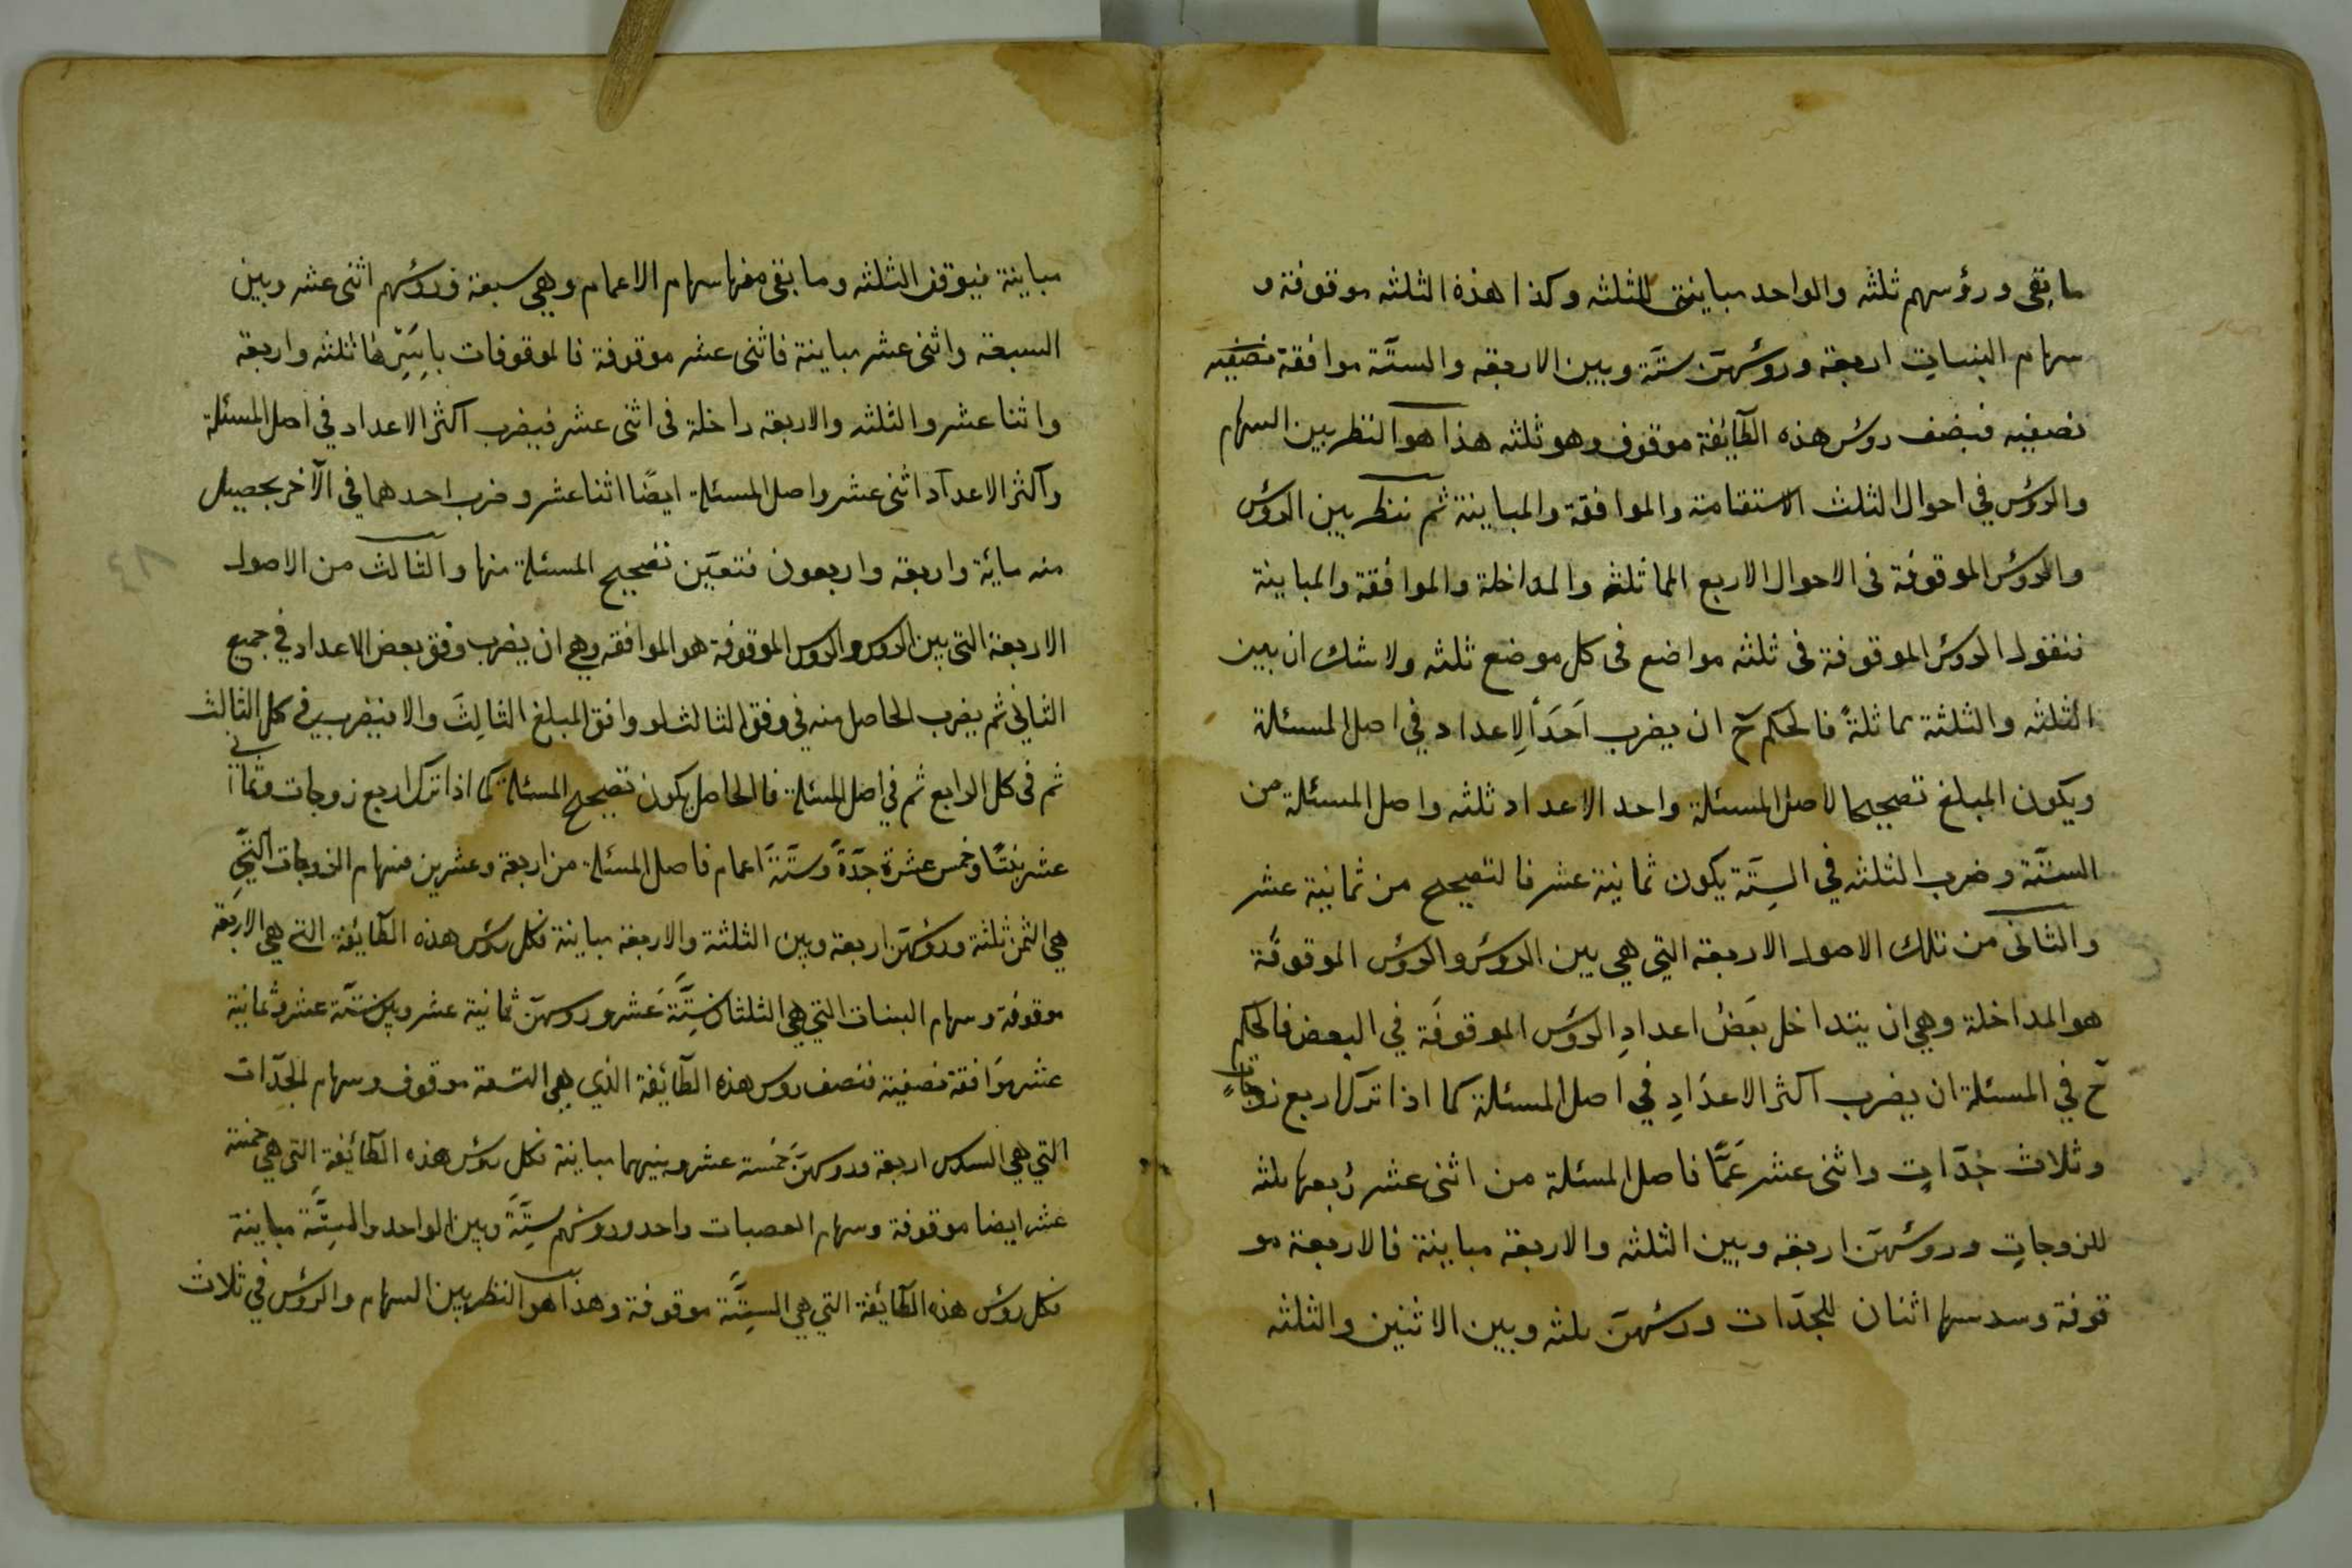 ما بقى ورؤسهم ثلثه والواحد مباينى للثلثه وكذا هذه الثلثه موقوفة و
سهام البنات اربعة ورؤسهنّ ستّة وبين الاربعه والستّة موافقة نصفيه
نصفيه فنصف روس هذه الطائفة موقوف وهو ثلثه هذا هو النظر بين السهام
والروس في احوال الثلث الاستقامة والموافقة والمباينة ثم ننظر بين الروس
والروس الموقوفة فى الاحوال الاربع المماثلة والمداخلة والموافقة والمباينة
فنقول الروس الموقوفة فى ثلثه مواضع فى كل موضع ثلثه ولا شك ان بين
الثلثه والثلثة مماثلةً فالحكم ح ان يضرب احد الاعداد في اصل المسئلة
ويكون المبلغ تصحيحا لاصل المسئلة واحد الاعداد ثلثه واصل المسئلة من
الستّة وضرب الثلثه في السِتّة يكون ثمانية عشر فالتصحيح من ثمانية عشر
والثانى من تلك الاصول الاربعه التي هي بين الروس والروس الموقوفة
هو المداخلة وهي ان يتداخل بعَضُ اعدادِ الروس الموقوفَة في البعض فالحكم
ح في المسئلة ان يضرب اكثر الاعدَادِ في اصل المسئلة كما اذا ترك اربع زوجاتٍ
وثلاث جدّاتٍ واثنى عشر عَمًّا فاصل المسئلة من اثنى عشر رُبعها ثلثه
للزوجاتِ ورؤسهنّ اربعه وبين الثلثه والاربعه مباينة فالاربعة مو
قوفة وسدسها اثنان للجدّات ورؤسهنّ ثلثه وبين الاثنين والثلثه
مباينة فيوقف الثلثه وما بقى منها سهام الاعمام وهي سبعة ورؤسهم اثنى عشر وبين
السبعة واثنى عشر مباينة فاثنى عشر موقوفة فالموقوفات باسرها ثلثه واربعة
واثنا عشر والثلثه والاربعه داخلة فى اثنى عشر فيضرب اكثر الاعداد في اصل المسئلة
واكثر الاعداد اثنى عشر واصل المسئلة ايضًا اثنا عشر وضرب احدهما في الآخر يحصيل
منه مائة واربعه واربعون فتعيّن تصحيح المسئلة منها والثالث من الاصول
الاربعة التى بين الروس والروس الموقوفة هو الموافقه وهي ان يضرب وفق بعض الاعداد في جميع
الثاني ثم يضرب الحاصل منه في وفق الثالث لو وافق المبلغ الثالِثَ والا فيضرب في كل الثالث
ثم فى كل الرابع ثم في اصل المسئلة فالحاصل يكون تصحيح المسئلة كما اذا ترك اربع زوجات وثمانى
عشر بنتًا وخمس عشرة جدّةً وستّةً اعمام فاصل المسئلة من اربعة وعشرين فسهام الزوجات التي
هي الثمن ثلثة ورؤسهنّ اربعة وبين الثلثة والاربعة مباينة فكل رؤس هذه الطائفة التى هي الاربعة
موقوفة وسهام البنات التي هي الثلثان ستّةَ عَشر وروسهنّ ثمانية عشر وبين ستّة عشر وثمانية
عشر موَافقة نصفية فنصف روس هذه الطآئفة الذي هي التسعة موقوف وسهام الجدّات
التي هي السدس اربعة وروسهنّ خمسة عشر وبينهما مباينة فكل رؤس هذه الطائفة التى هي خمسة
عشر ايضا موقوفة وسهام العصبات واحد وروسهم ستّةً وبين الواحد والستّة مباينة
فكل رؤس هذه الطآئفة التي هي الستّة موقوفة وهذا هو النظر بين السهام والرؤس في ثلاث